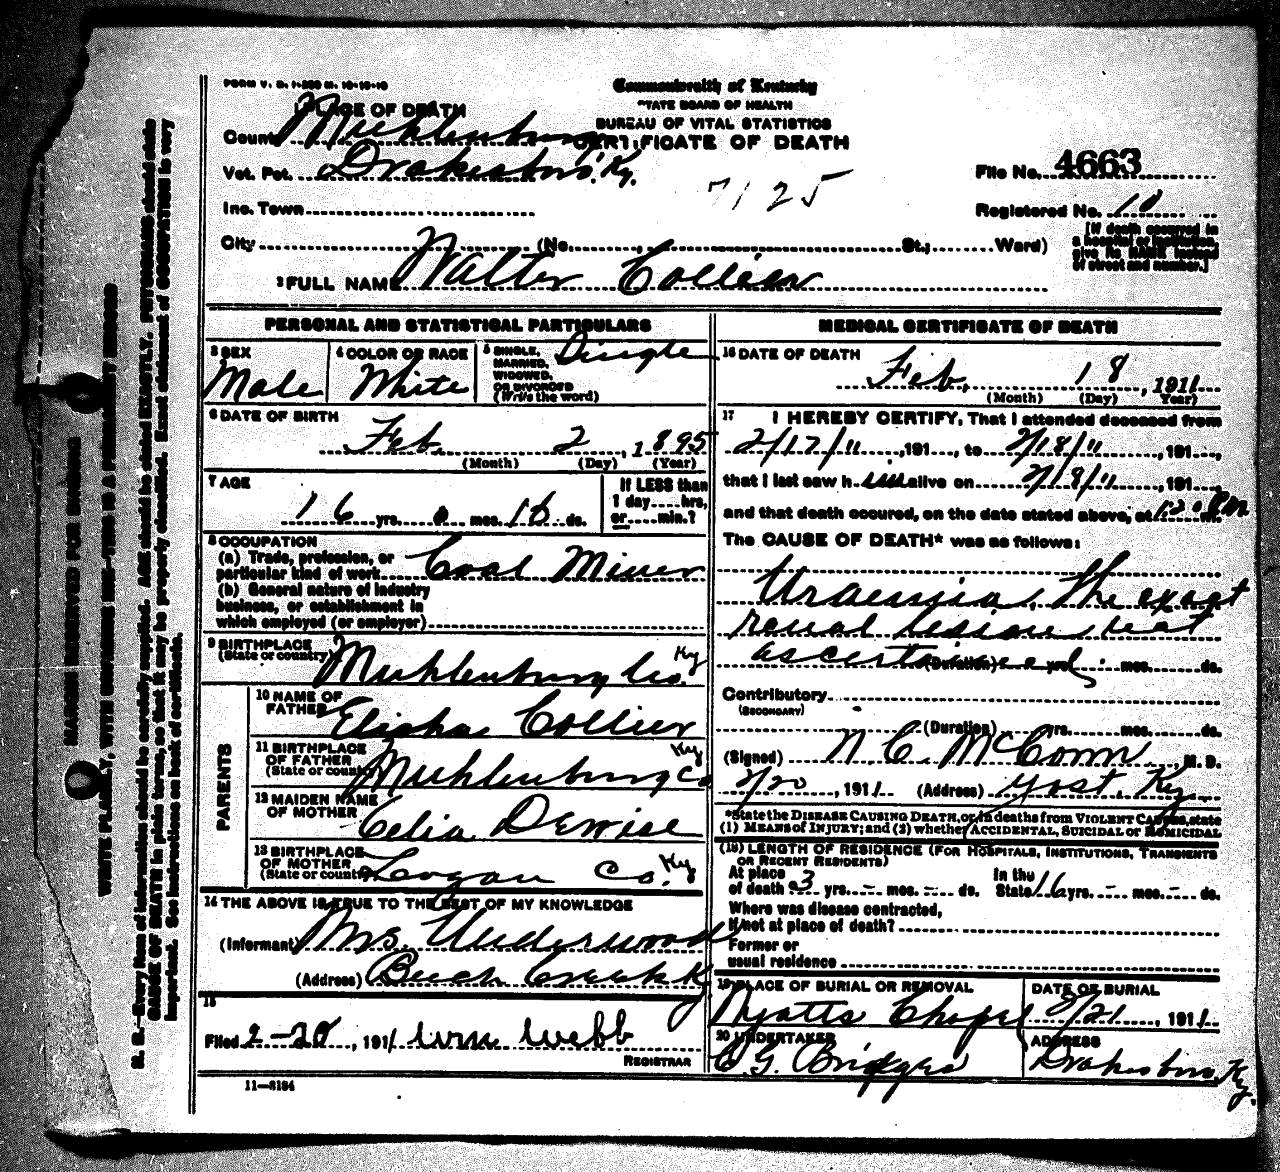 FORM V. S. 1-250 M. 10-18-10
Commonwealth of Kentucky
STATE BOARD OF HEALTH
BUREAU OF VITAL STATISTICS
CERTIFICATE OF DEATH
PLACE OF DEATH
County Muhlenburg
Vot. Pct. Drakesboro, Ky.
7125
File No. 4663
Inc. Town
Registered No. 10
City (No. , St.; Ward)
[If death occurred in
a hospital or institution,
give its NAME instead
of street and number.]
2 FULL NAME Walter Collier
PERSONAL AND STATISTICAL PARTICULARS
3 SEX
Male
4 COLOR OR RACE
White
5 SINGLE,
MARRIED,
WIDOWED,
OR DIVORCED
(Write the word)
Single
6 DATE OF BIRTH
Feb. 2, 1895
(Month) (Day) (Year)
7 AGE
16 yrs. 0 mos. 16 ds.
If LESS than
1 day....hrs,
or.....min.?
8 OCCUPATION
(a) Trade, profession, or
particular kind of work Coal Miner
(b) General nature of industry
business, or establishment in
which employed (or employer)
9 BIRTHPLACE
(State or country) Muhlenburg Co. Ky
PARENTS
10 NAME OF
FATHER Elisha Collier
11 BIRTHPLACE
OF FATHER
(State or country) Muhlenburg Co Ky
12 MAIDEN NAME
OF MOTHER Celia Dewise
13 BIRTHPLACE
OF MOTHER
(State or country) Logan Co. Ky
14 THE ABOVE IS TRUE TO THE BEST OF MY KNOWLEDGE
(Informant) Mrs. Underwood
(Address) Beech Creek Ky
15
Filed 2-20, 1911 Wm Webb
REGISTRAR
11-3184
MEDICAL CERTIFICATE OF DEATH
16 DATE OF DEATH
Feb. 18, 1911
(Month) (Day) (Year)
17 I HEREBY CERTIFY, That I attended deceased from
2/17/11, 191 , to 2/18/11, 191 ,
that I last saw him alive on 2/18/11, 191 ,
and that death occured, on the date stated above, at PM m.
The CAUSE OF DEATH* was as follows:
Uraemia. The exact
renal lesion not
ascertained.
(Duration) yrs. mos. ds.
Contributory
(SECONDARY)
(Duration) yrs. mos. ds.
(Signed) N. C. McConn M. D.
2/20, 1911 (Address) Yost, Ky.
*State the DISEASE CAUSING DEATH, or, in deaths from VIOLENT CAUSES, state
(1) MEANS OF INJURY; and (2) whether ACCIDENTAL, SUICIDAL or HOMICIDAL
(18) LENGTH OF RESIDENCE (FOR HOSPITALS, INSTITUTIONS, TRANSIENTS
OR RECENT RESIDENTS)
At place
of death 3 yrs. - mos. - ds.
In the
State 16 yrs. - mos. - ds.
Where was disease contracted,
If not at place of death?
Former or
usual residence
19 PLACE OF BURIAL OR REMOVAL
Wyatts Chapel
DATE OF BURIAL
2/21, 1911
20 UNDERTAKER
C. G. Bridges
ADDRESS
Drakesboro, Ky.
MARGIN RESERVED FOR BINDING
WRITE PLAINLY, WITH UNFADING INK—THIS IS A PERMANENT RECORD
N. B.—Every item of information should be carefully supplied. AGE should be stated EXACTLY. PHYSICIANS should state
CAUSE OF DEATH in plain terms, so that it may be properly classified. Exact statement of OCCUPATION is very
important. See instructions on back of certificate.